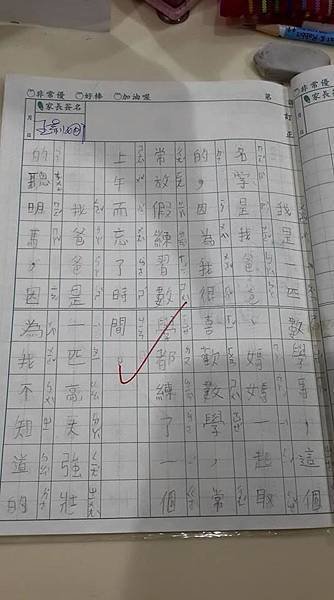 非常優 好棒 加油喔 第
家長簽名
月 日
訂正
我是一匹數學馬，這個
名字是我爸爸、媽媽一起取
的，因為我很喜歡數學，常
常放假練習數學都練了一個
上午而忘了時間。
我爸爸是一匹高大強壯
的聰明馬，因為我不知道的